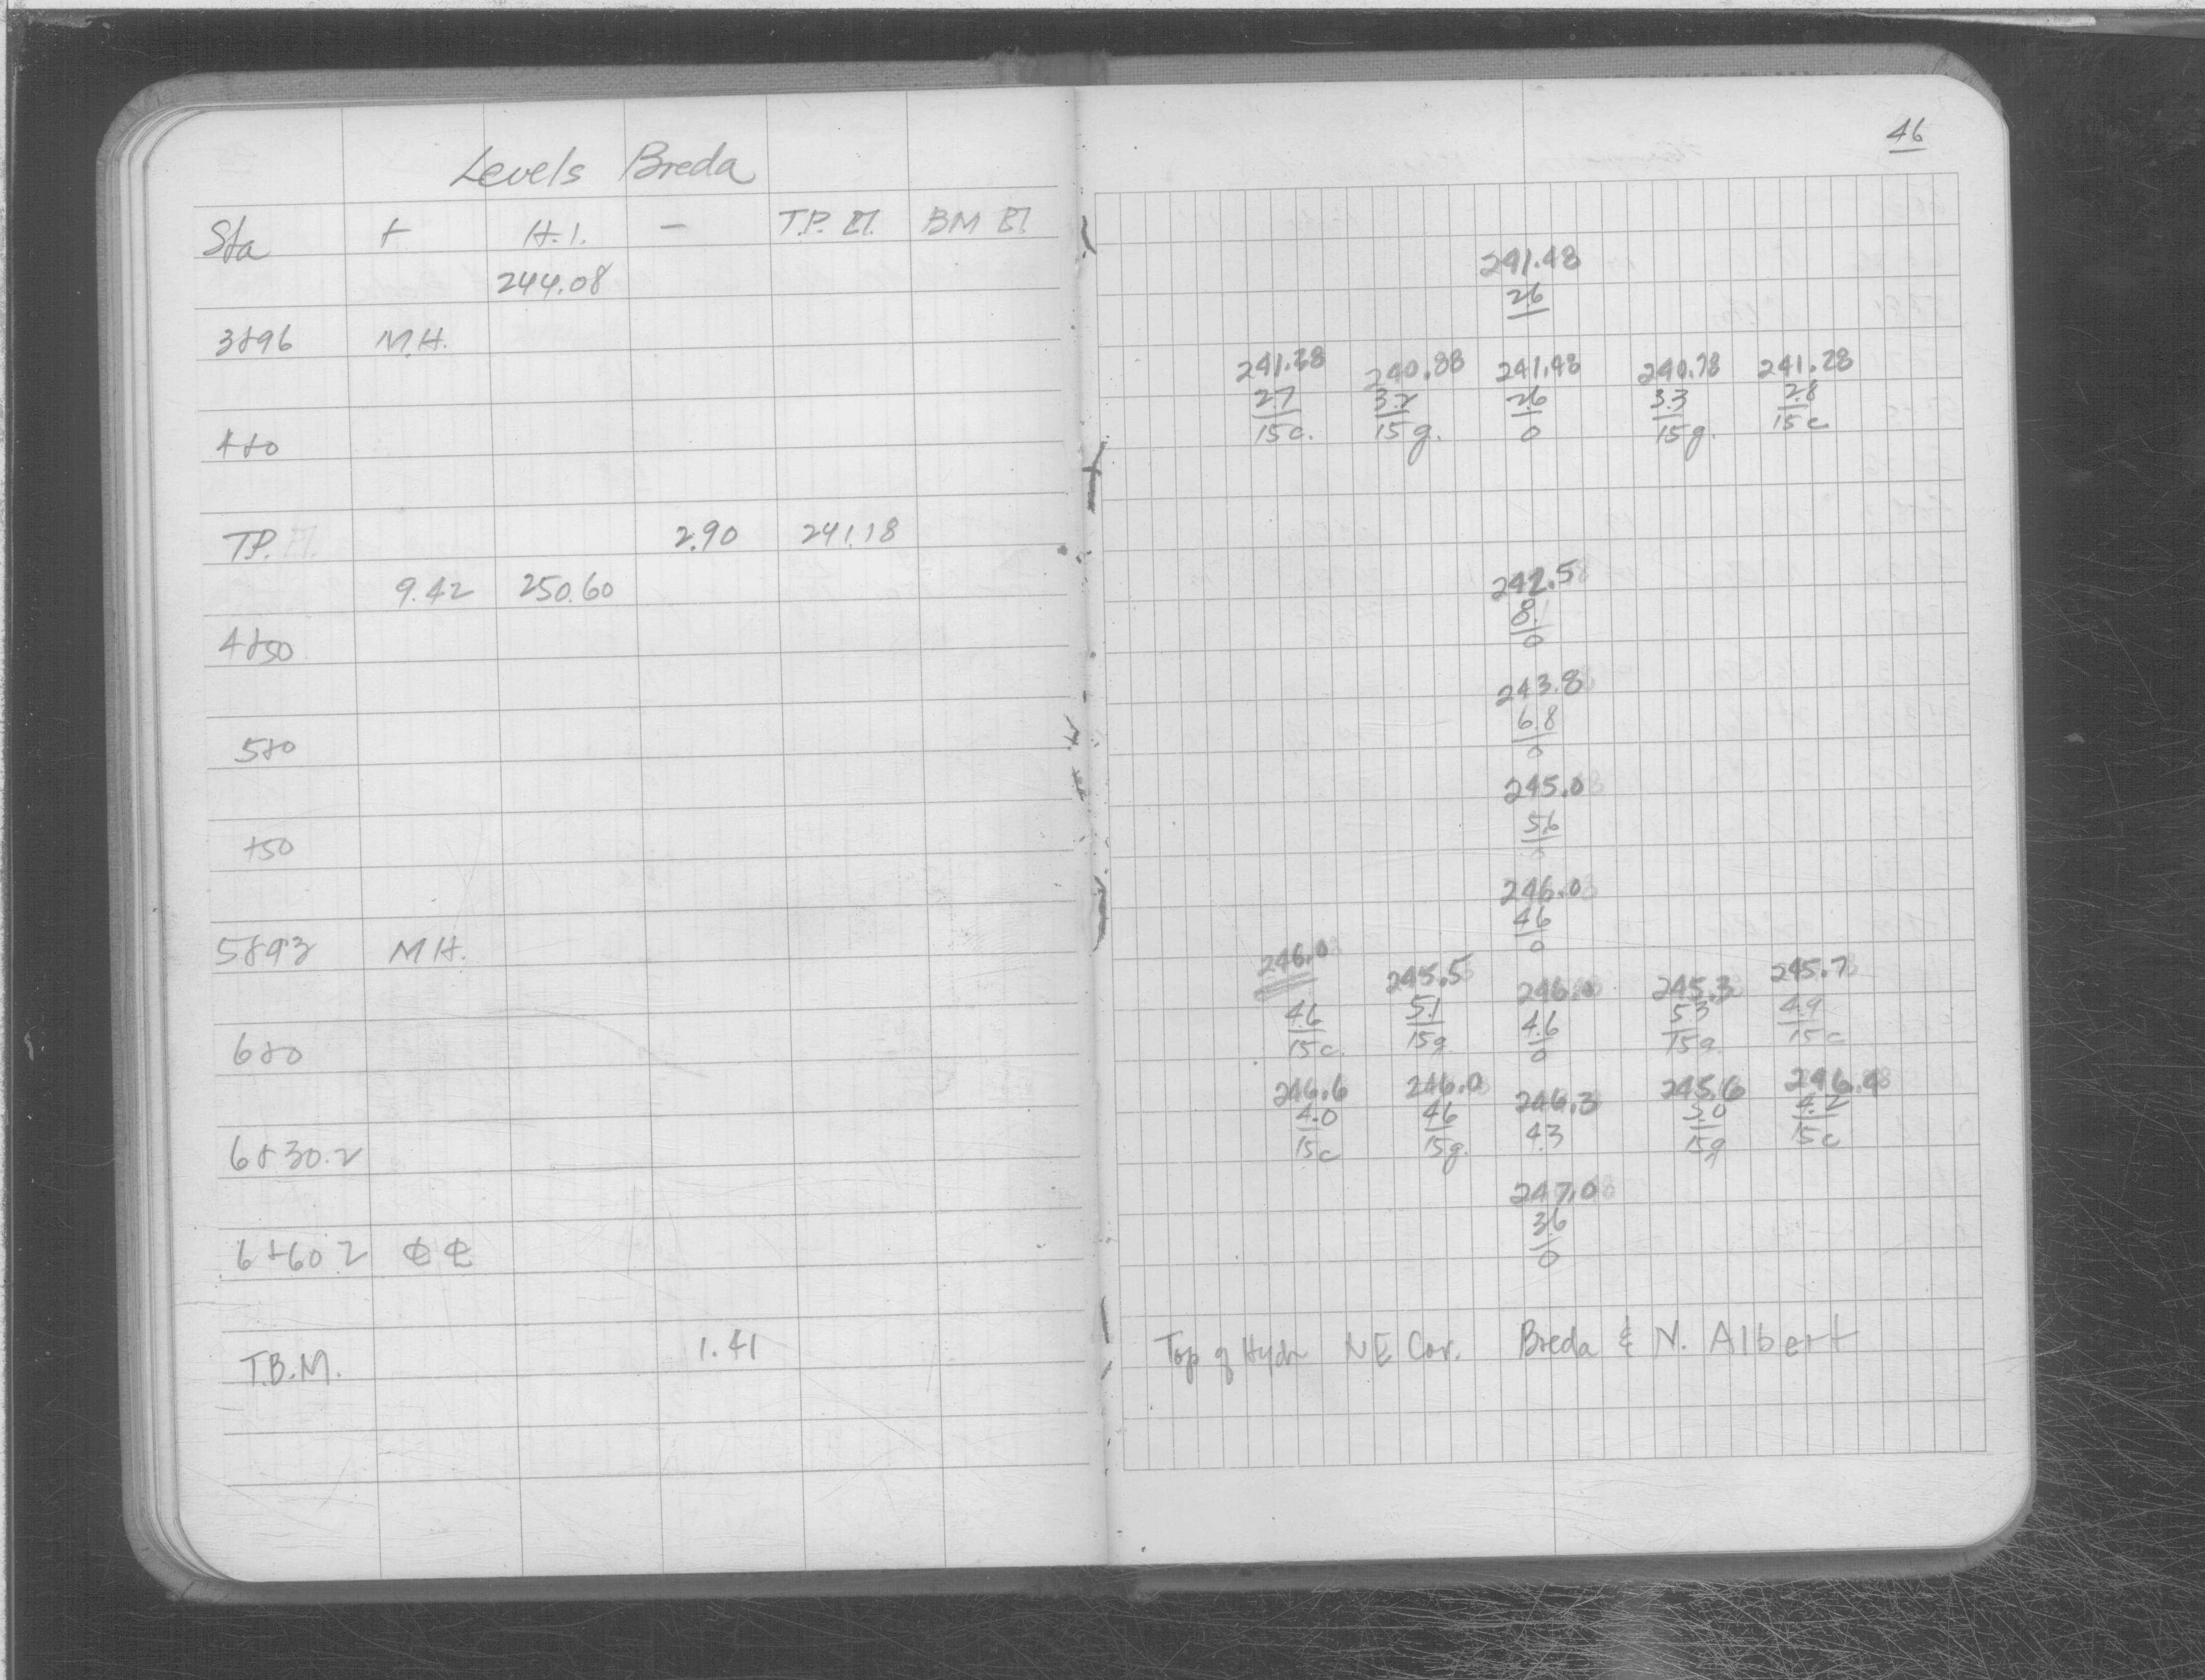 46
Levels Breda
Sta + H.I. - T.P. El. BM El
244.08 241.48
2.6
3+96 M.H.
241.38 240.88 241.48 240.78 241.28
2.7 3.2 2.6 3.3 2.8
4+0 15c. 15g. 0 15g. 15c
T.P. 2.90 241.18
9.42 250.60 242.5
8.1
4+50 0
243.8
6.8
5+0 0
245.0
5.6
+50 0
246.0
4.6
5+93 M.H. 0
246.0 245.5 246.0 245.3 245.7
4.6 5.1 4.6 5.3 4.9
6+0 15c. 15g 0 15g 15c
246.6 246.0 246.3 245.6 246.4
4.0 4.6 4.3 5.0 4.2
6+30.2 15c 15g. 15g 15c
247.0
3.6
6+60.2 ℄ ℄ 0
T.B.M. 1.41 Top of Hydr NE Cor. Breda & N. Albert